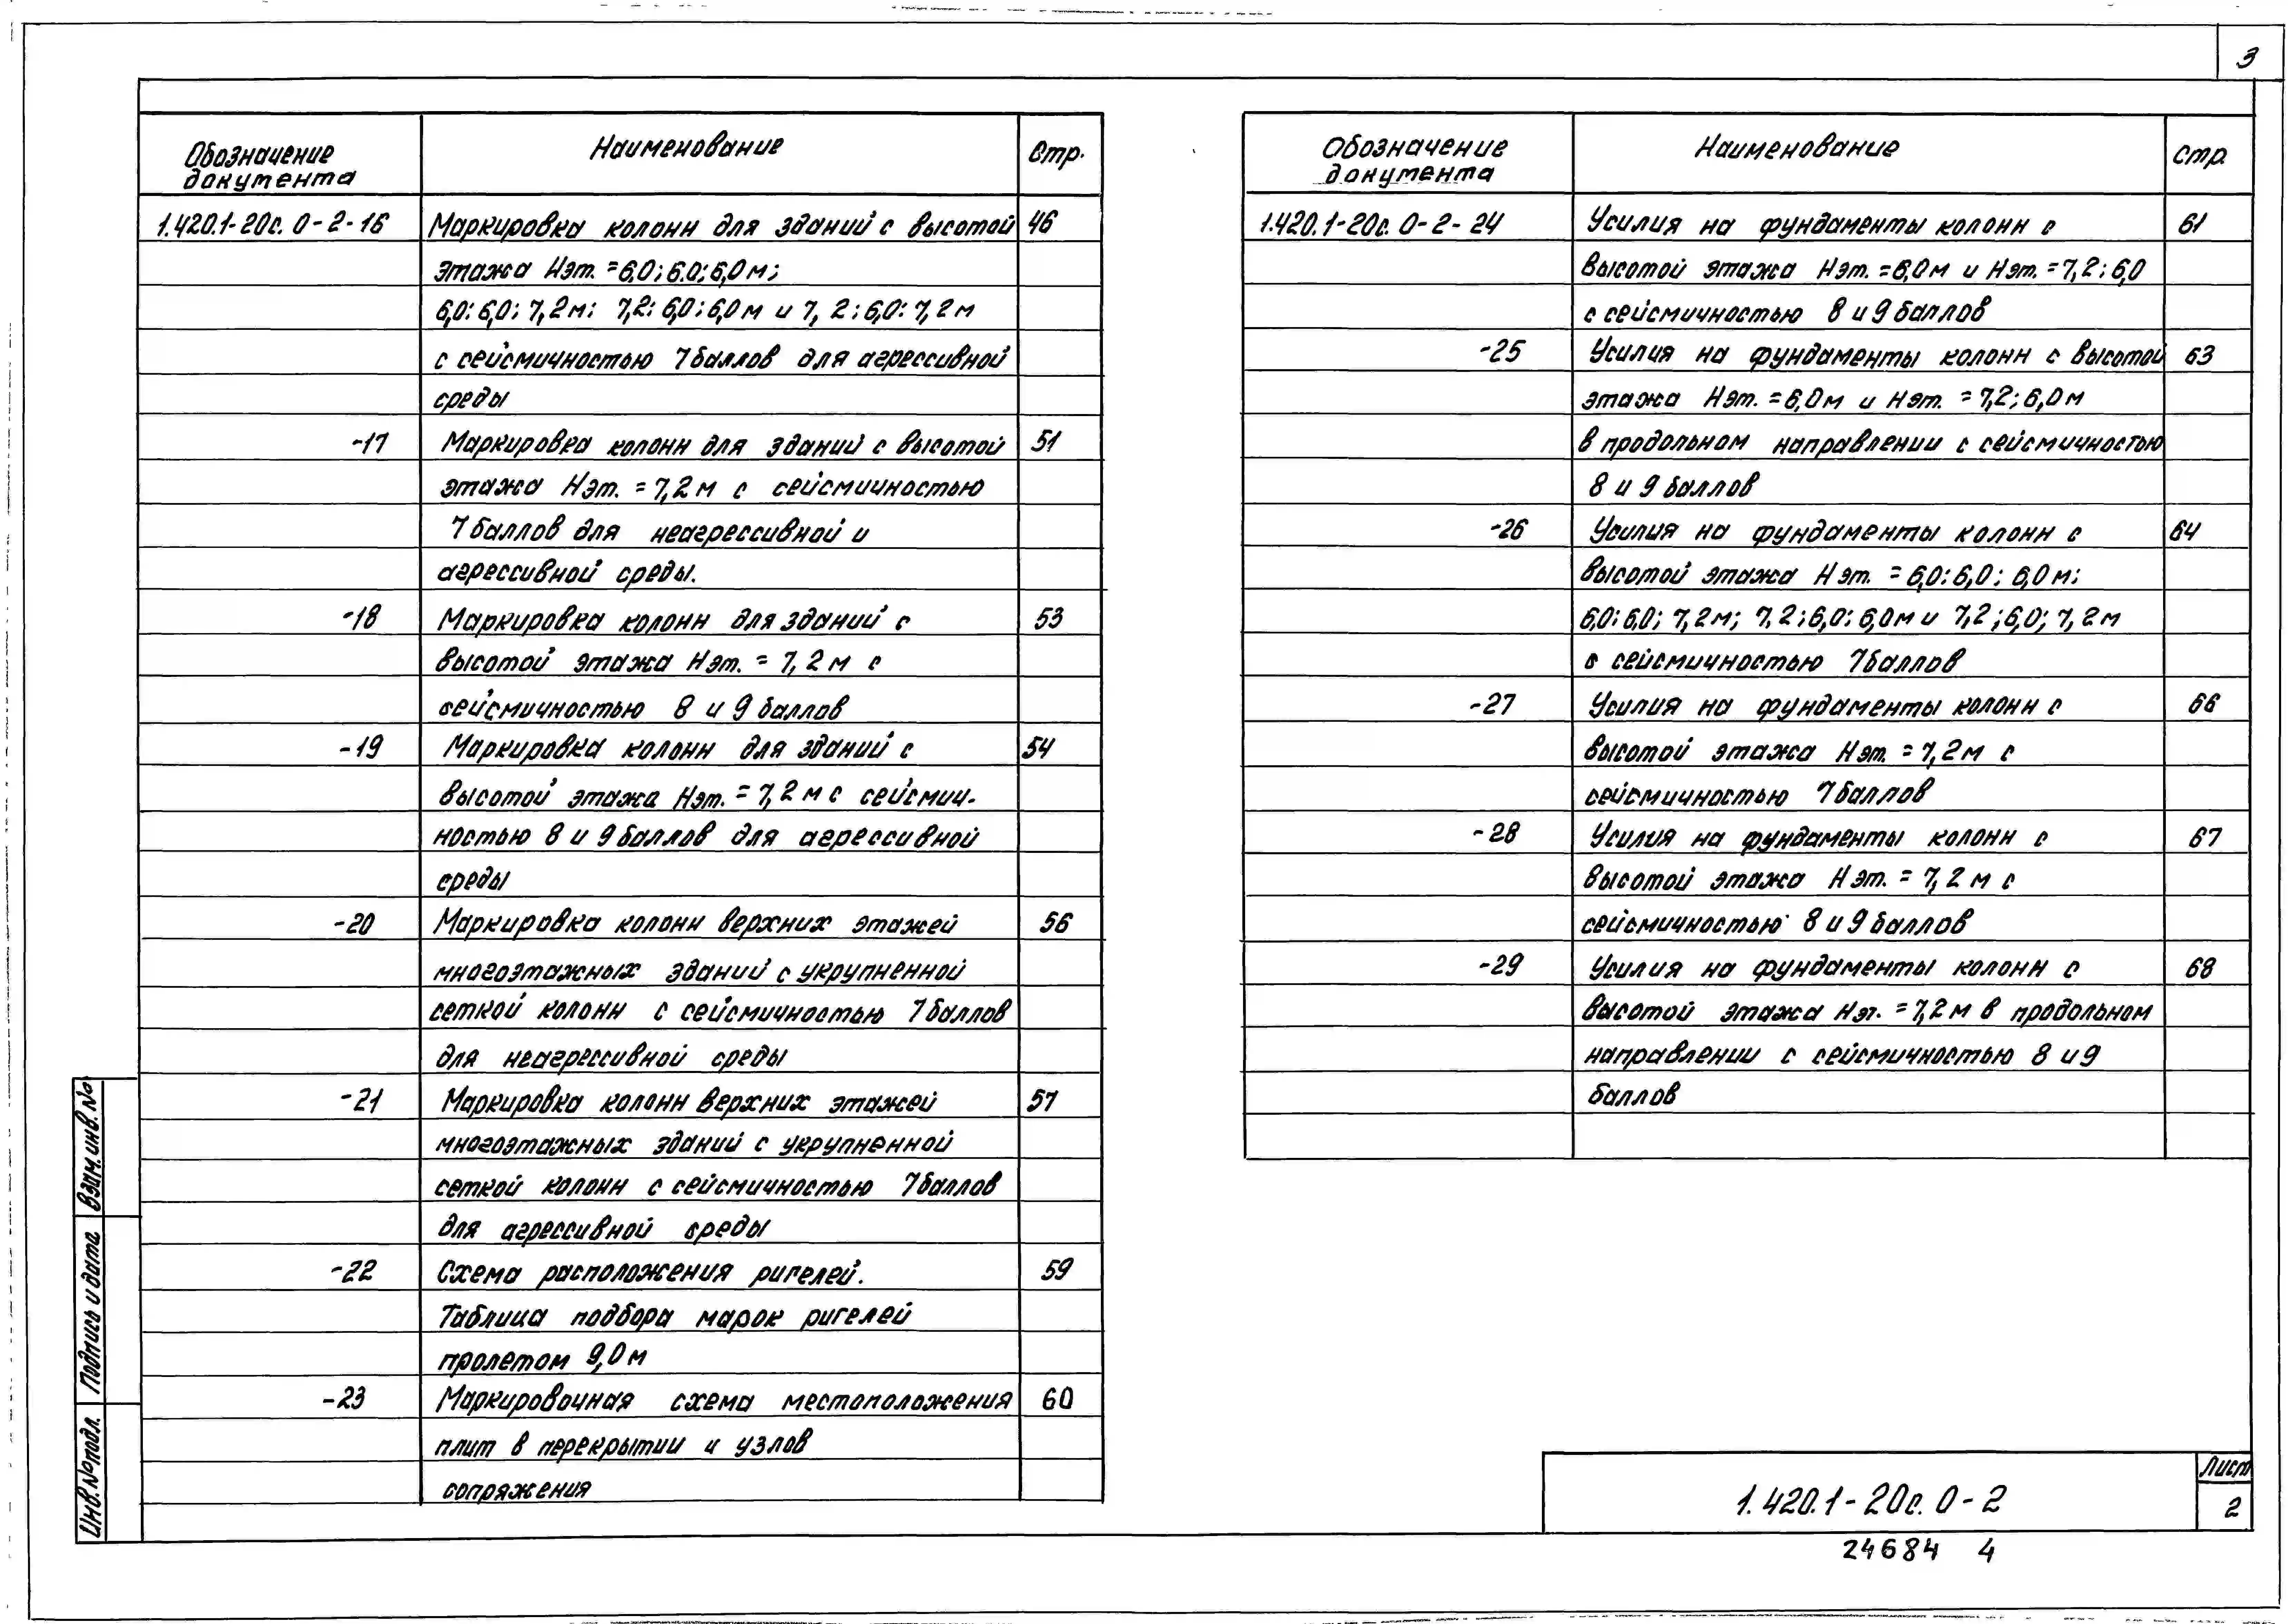 3
Обозначение документа Наименование Стр.
1.420.1-20с. 0-2-16 Маркировка колонн для зданий с высотой 46
этажа Нэт.=6,0; 6.0; 6,0м;
6,0; 6,0; 7,2м; 7,2; 6,0; 6,0м и 7,2; 6,0; 7,2м
с сейсмичностью 7 баллов для агрессивной
среды
-17 Маркировка колонн для зданий с высотой 51
этажа Нэт. = 7,2м с сейсмичностью
7 баллов для неагрессивной и
агрессивной среды.
-18 Маркировка колонн для зданий с 53
высотой этажа Нэт. = 7,2м с
сейсмичностью 8 и 9 баллов
-19 Маркировка колонн для зданий с 54
высотой этажа Нэт. = 7,2м с сейсмич-
ностью 8 и 9 баллов для агрессивной
среды
-20 Маркировка колонн верхних этажей 56
многоэтажных зданий с укрупненной
сеткой колонн с сейсмичностью 7 баллов
для неагрессивной среды
-21 Маркировка колонн верхних этажей 57
многоэтажных зданий с укрупненной
сеткой колонн с сейсмичностью 7 баллов
для агрессивной среды
-22 Схема расположения ригелей. 59
Таблица подбора марок ригелей
пролетом 9,0м
-23 Маркировочная схема местоположения 60
плит в перекрытии и узлов
сопряжения
Обозначение документа Наименование Стр
1.420.1-20с. 0-2-24 Усилия на фундаменты колонн с 61
высотой этажа Нэт. = 6,0м и Нэт. = 7,2; 6,0
с сейсмичностью 8 и 9 баллов
-25 Усилия на фундаменты колонн с высотой 63
этажа Нэт. = 6,0м и Нэт. = 7,2; 6,0м
в продольном направлении с сейсмичностью
8 и 9 баллов
-26 Усилия на фундаменты колонн с 64
высотой этажа Нэт. = 6,0; 6,0; 6,0м;
6,0; 6,0; 7,2м; 7,2; 6,0; 6,0м и 7,2; 6,0; 7,2м
с сейсмичностью 7 баллов
-27 Усилия на фундаменты колонн с 66
высотой этажа Нэт. = 7,2м с
сейсмичностью 7 баллов
-28 Усилия на фундаменты колонн с 67
высотой этажа Нэт. = 7,2м с
сейсмичностью 8 и 9 баллов
-29 Усилия на фундаменты колонн с 68
высотой этажа Нэт. = 7,2м в продольном
направлении с сейсмичностью 8 и 9
баллов
Взам.инв.№
Подпись и дата
Инв.№подл.
1.420.1-20с. 0-2
Лист
2
24684 4